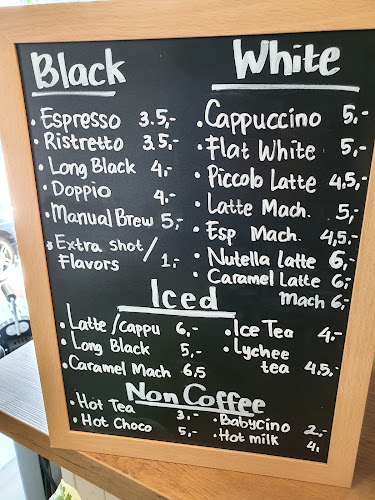 Black
• Espresso 3.5,-
• Ristretto 3.5,-
• Long Black 4,-
• Doppio 4,-
• Manual Brew 5,-
* Extra shot/
Flavors 1,-
White
• Cappuccino 5,-
• Flat White 5,-
• Piccolo Latte 4,5,-
• Latte Mach. 5,-
• Esp Mach. 4,5,-
• Nutella Latte 6,-
• Caramel Latte 6,-
Mach 6,-
Iced
• Latte/cappu 6,-
• Long Black 5,-
• Caramel Mach 6,5
• Ice Tea 4,-
• Lychee
tea 4.5,-
Non Coffee
• Hot Tea 3,-
• Hot Choco 5,-
• Babycino 2,-
• Hot milk 4,